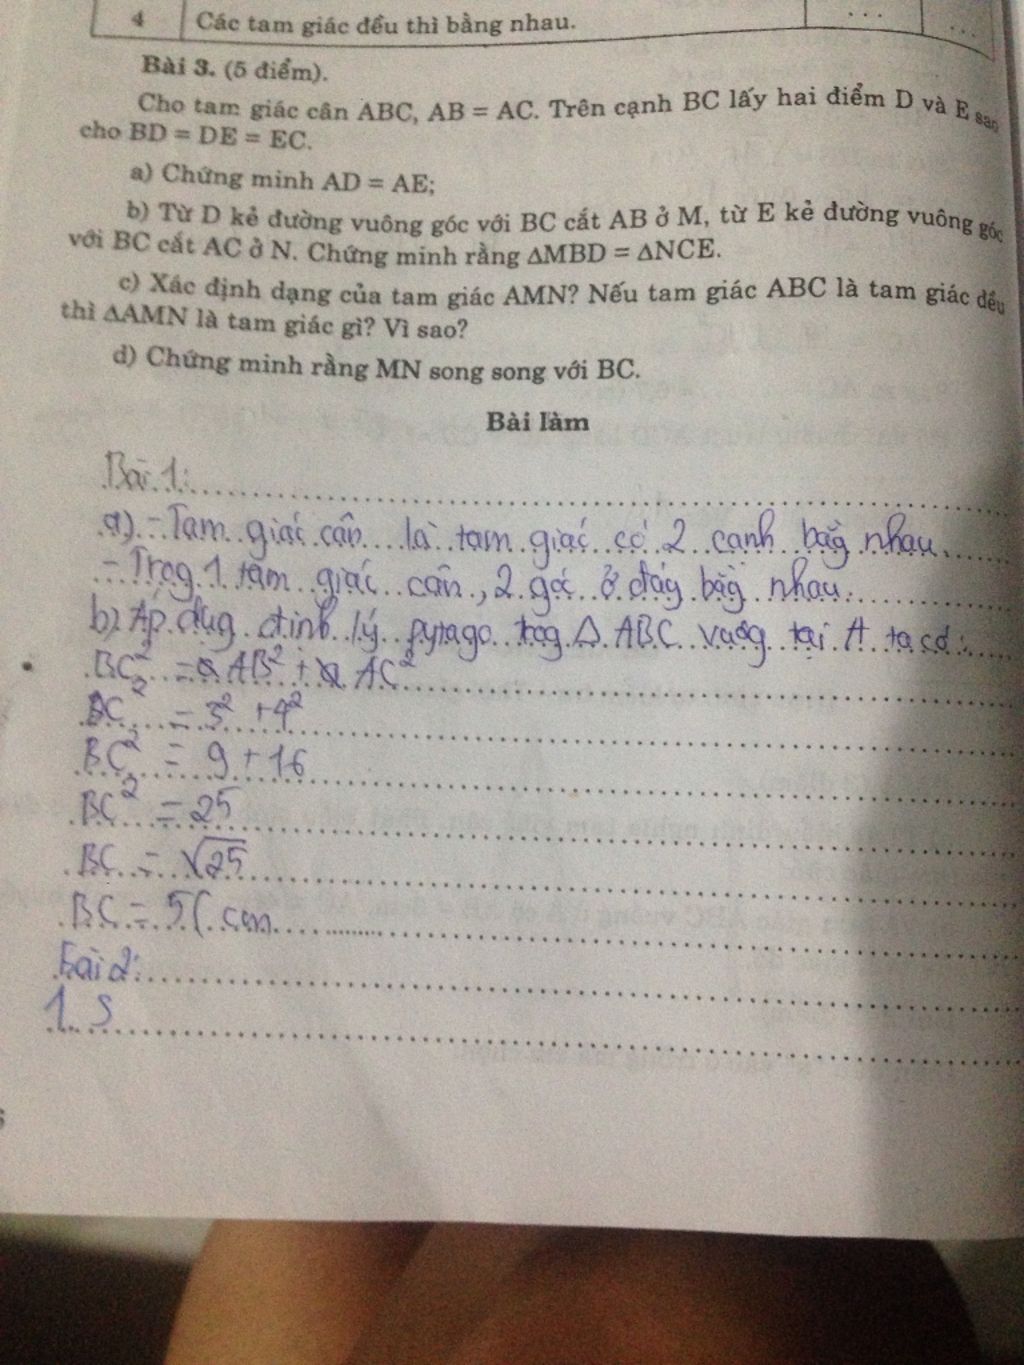 4 Các tam giác đều thì bằng nhau. ... ...
Bài 3. (5 điểm).
Cho tam giác cân ABC, AB = AC. Trên cạnh BC lấy hai điểm D và E sao
cho BD = DE = EC.
a) Chứng minh AD = AE;
b) Từ D kẻ đường vuông góc với BC cắt AB ở M, từ E kẻ đường vuông góc
với BC cắt AC ở N. Chứng minh rằng ΔMBD = ΔNCE.
c) Xác định dạng của tam giác AMN? Nếu tam giác ABC là tam giác đều
thì ΔAMN là tam giác gì? Vì sao?
d) Chứng minh rằng MN song song với BC.
Bài làm
Bài 1:
a) - Tam giác cân là tam giác có 2 cạnh băg nhau
- Trog 1 tam giác cân, 2 gó ở đáy băg nhau.
b) Áp dụg định lý pytago trog Δ ABC vuôg tại A ta có:
BC² = AB² + AC²
BC² = 3² + 4²
BC² = 9 + 16
BC² = 25
BC = √25
BC = 5 ( cm
Bài 2:
1. S